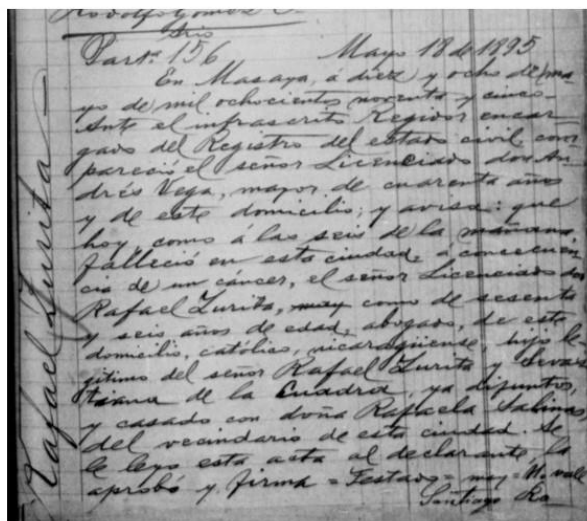 Rodolfo Gomez C.
Srio
Part.ª 156 Mayo 18 de 1895
En Masaya, á diez y ocho de ma
yo de mil ochocientos noventa y cinco.
Ante el infrascrito Regidor encar
gado del Registro del estado civil com
pareció el señor Licenciado don An
drés Vega, mayor de cuarenta años
y de este domicilio; y avisa: que
hoy, como á las seis de la mañana
falleció en esta ciudad, á concecuen
cia de un cáncer, el señor Licenciado don
Rafael Zurita, may como de sesenta
y seis años de edad, abogado, de este
domicilio, católico, nicaragüense, hijo le
gitimo del señor Rafael Zurita y Sevas
tiana de la Cuadra, ya difuntos,
y casado con doña Rafaela Salinas,
del vecindario de esta ciudad. Se
le leyo esta acta al declarante, la
aprobó y firma = Testado = may = No vale
Santiago
Rafael Zurita